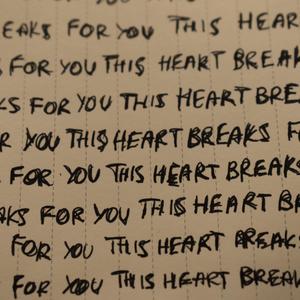 EAKS FOR YOU THIS HEAR
FOR YOU THIS HEART BREAK
KS FOR YOU THIS HEART BRE
R YOU THIS HEART BREAKS F
FOR YOU THIS HEART BREAKS
AKS FOR YOU THIS HEART B
FOR YOU THIS HEART BREAKS
FOR YOU THIS HEART BREAK